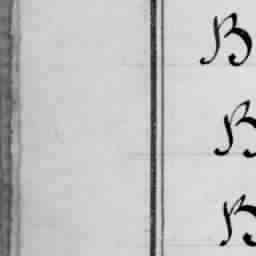 B
B
B